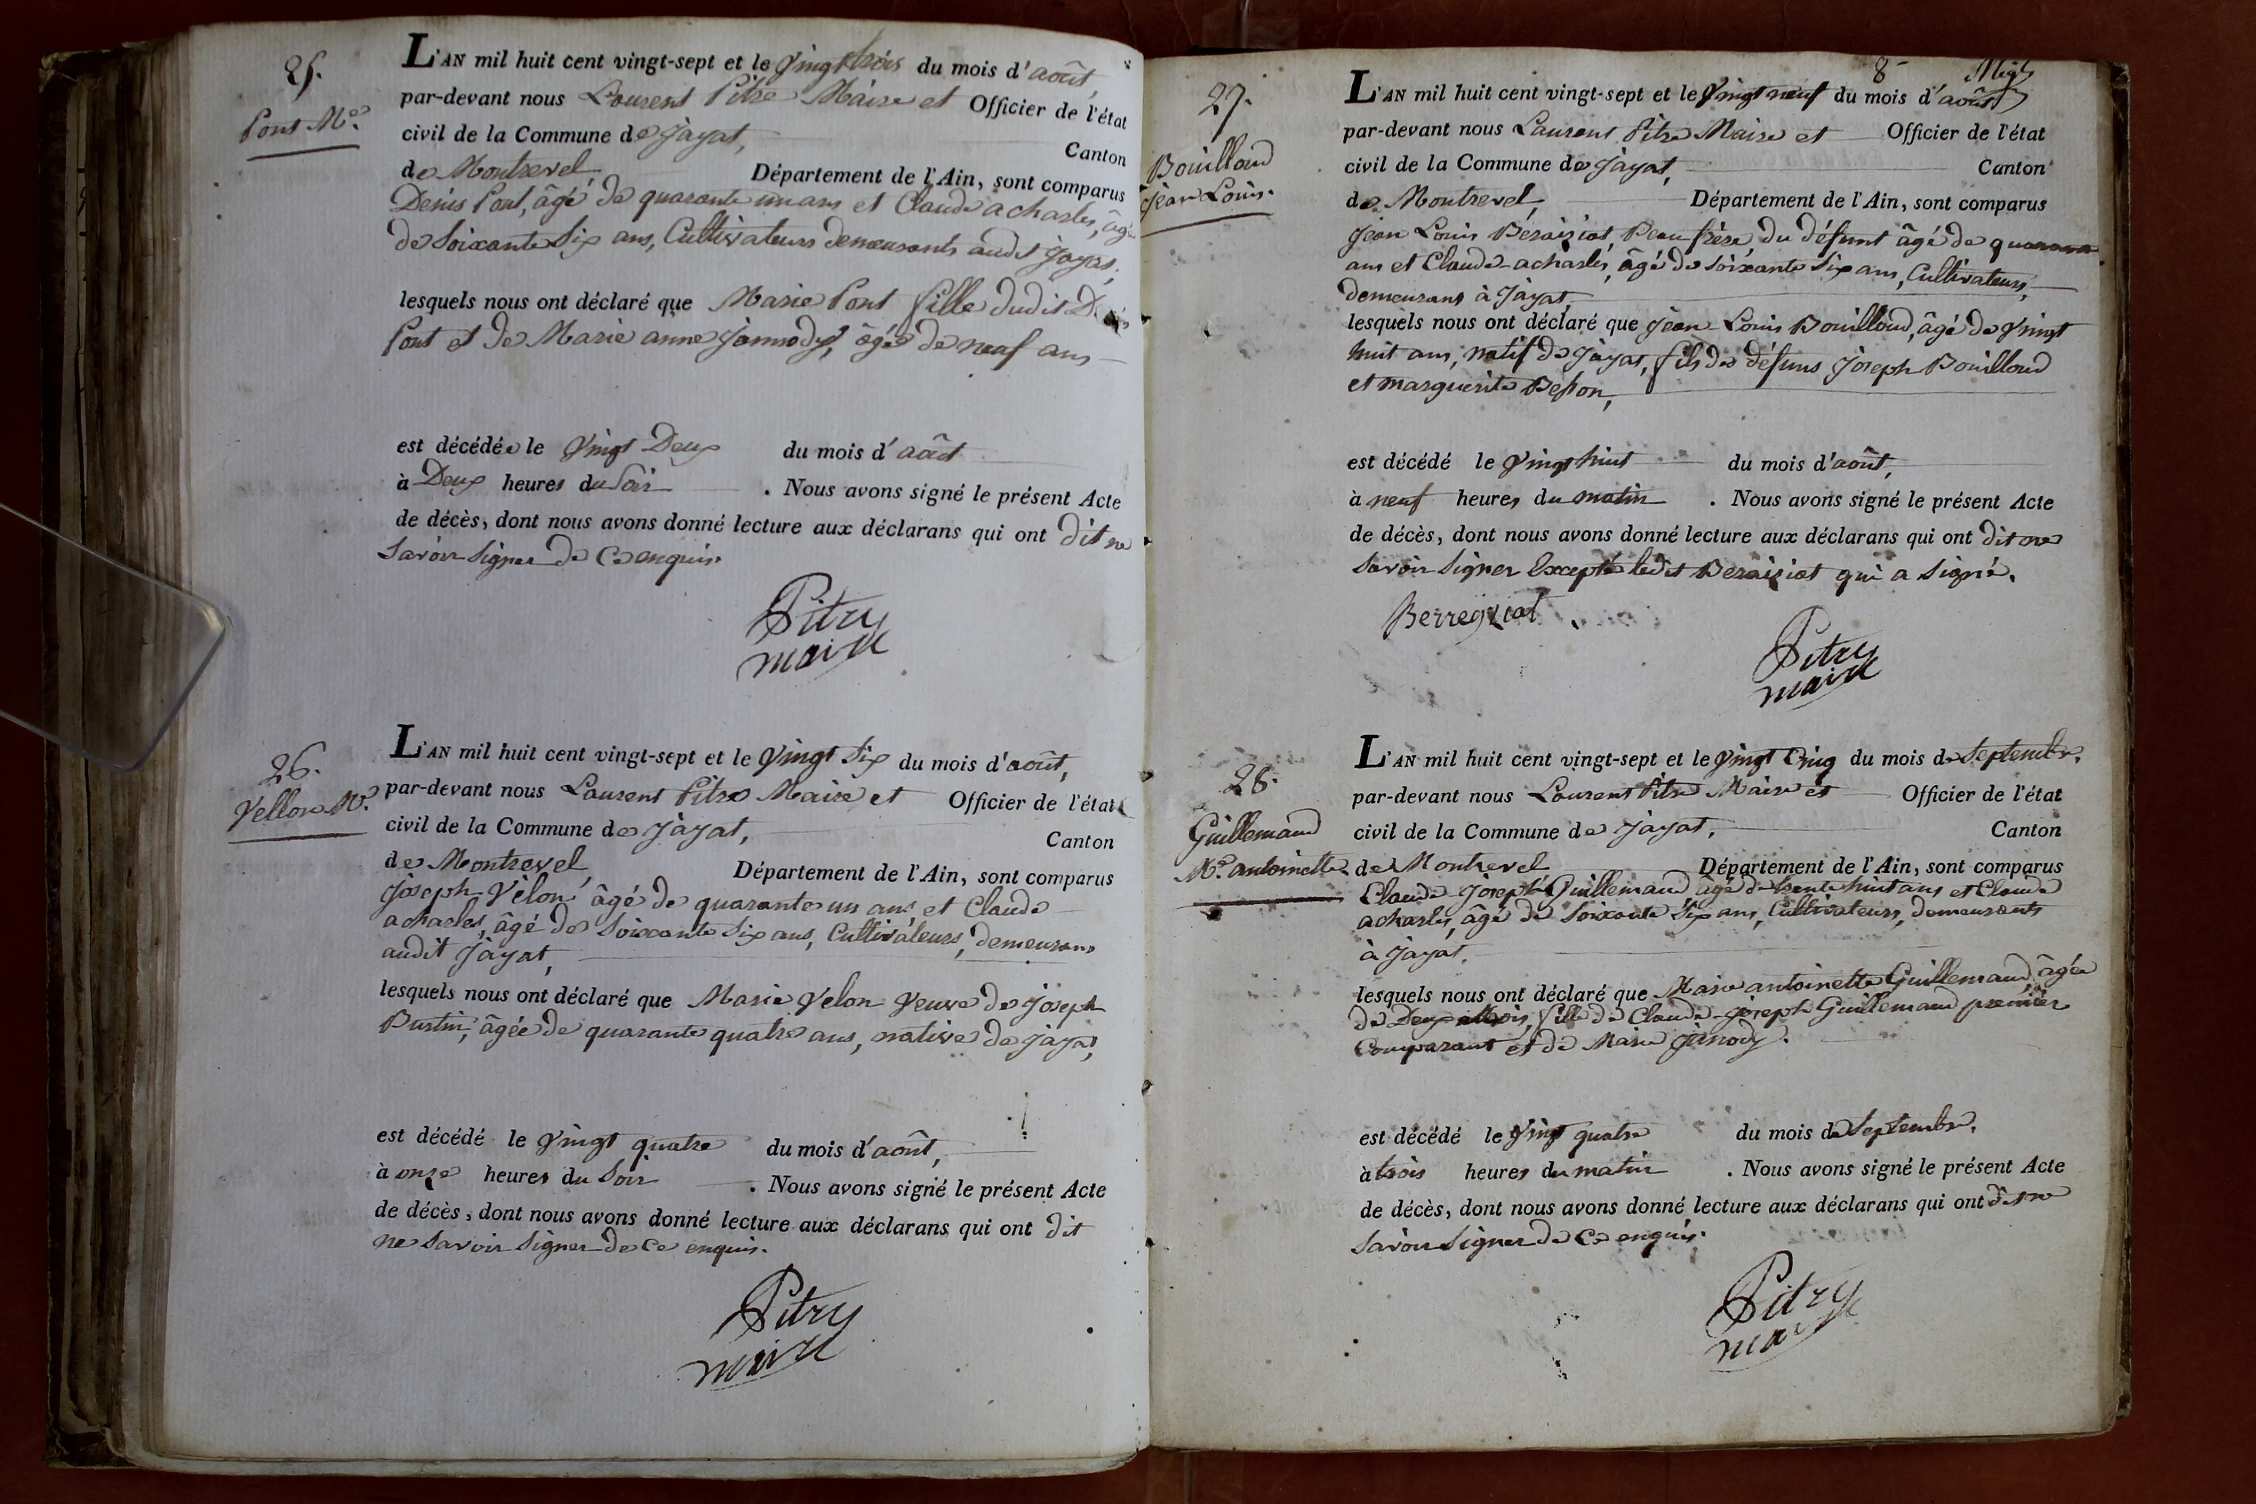 25.
Pont Mie.
L'AN mil huit cent vingt-sept et le vingt trois du mois d'août,
par-devant nous Laurent Pitre Maire et Officier de l'état
civil de la Commune de Jayat, Canton
de Montrevel, Département de l'Ain, sont comparus
Denis Pont, âgé de quarante un ans et Claude acharles, âgé
de soixante six ans, Cultivateurs demeurants audit Jayat,
lesquels nous ont déclaré que Marie Pont fille dudit
Pont et de Marie anne âgée de neuf ans
est décédée le vingt Deux du mois d'août
à Deux heures du soir . Nous avons signé le présent Acte
de décès, dont nous avons donné lecture aux déclarans qui ont dit ne
savoir signer de ce enquis.
Pitre
maire
26.
Vellon Mie.
L'AN mil huit cent vingt-sept et le vingt six du mois d'août,
par-devant nous Laurent Pitre Maire et Officier de l'état
civil de la Commune de Jayat, Canton
de Montrevel, Département de l'Ain, sont comparus
joseph Vélon, âgé de quarante un ans et Claude
acharles, âgé de soixante six ans, Cultivateurs, demeurans
audit Jayat,
lesquels nous ont déclaré que Marie Velon veuve de joseph
Burtin, âgée de quarante quatre ans, native de jayat,
est décédé le vingt quatre du mois d'août,
à onze heures du soir . Nous avons signé le présent Acte
de décès, dont nous avons donné lecture aux déclarans qui ont dit
ne savoir signer de ce enquis.
Pitre
maire
8
27.
Bouilloud
jean Louis.
L'AN mil huit cent vingt-sept et le vingt neuf du mois d'août
par-devant nous Laurent Pitre Maire et Officier de l'état
civil de la Commune de Jayat, Canton
de Montrevel, Département de l'Ain, sont comparus
jean Louis Beraiziat, Beau frère du défunt âgé de quarante
ans et Claude acharles, âgé de soixante six ans, Cultivateurs,
demeurans à Jayat,
lesquels nous ont déclaré que jean Louis Bouilloud, âgé de vingt
huit ans, natif de Jayat, fils des défuns joseph Bouilloud
et marguerite Besson,
est décédé le vingt huit du mois d'août,
à neuf heures du matin . Nous avons signé le présent Acte
de décès, dont nous avons donné lecture aux déclarans qui ont dit ne
savoir signer Excepté ledit Beraiziat qui a signé.
Berreiziat
Pitre
maire
28.
Guillemaud
Mie. antoinette
L'AN mil huit cent vingt-sept et le vingt Cinq du mois de septembre.
par-devant nous Laurent Pitre Maire et Officier de l'état
civil de la Commune de Jayat, Canton
de Montrevel Département de l'Ain, sont comparus
Claude joseph Guillemaud âgé de trente huit ans et Claude
acharles, âgé de soixante six ans, Cultivateurs, demeurants
à Jayat.
lesquels nous ont déclaré que Marie antoinette Guillemaud âgée
de Deux mois, fille de Claude joseph Guillemaud premier
Comparant et de Marie Janody.
est décédé le vingt quatre du mois de septembre.
à trois heures du matin . Nous avons signé le présent Acte
de décès, dont nous avons donné lecture aux déclarans qui ont dit ne
savoir signer de ce enquis.
Pitre
maire